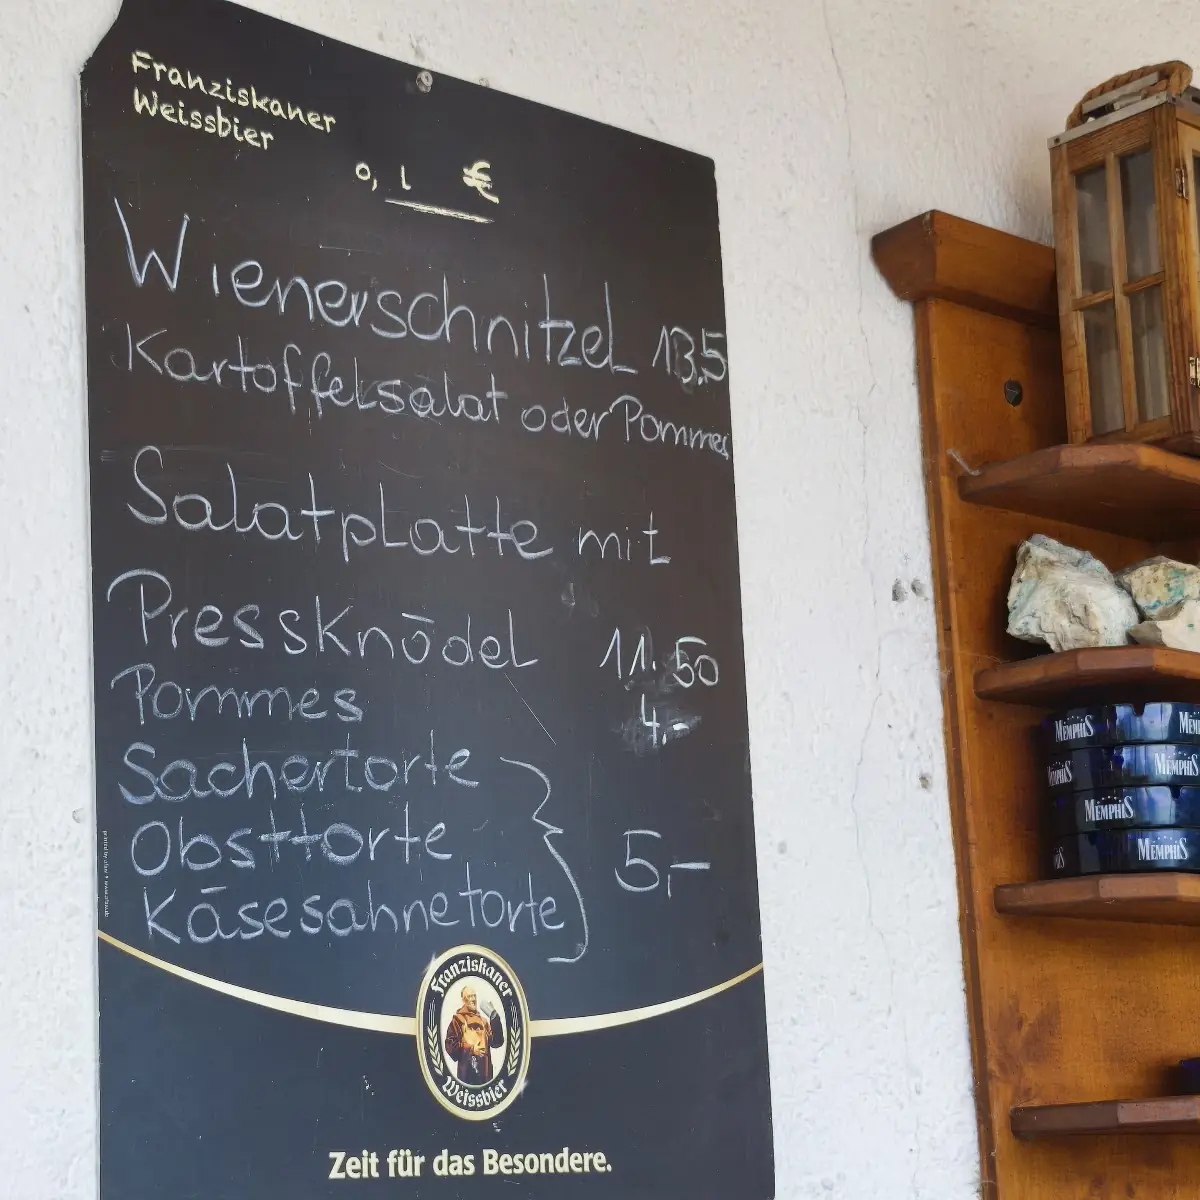 Franziskaner
Weissbier
0, l €
Wienerschnitzel 13.5
Kartoffelsalat oder Pommes
Salatplatte mit
Pressknödel 11.50
Pommes 4.-
Sachertorte
Obsttorte 5,-
Käsesahnetorte
Franziskaner
Weissbier
Zeit für das Besondere.
MEMPHIS MEM
MEMPHIS MEMPHIS
MEMPHIS
IS MEMPHIS